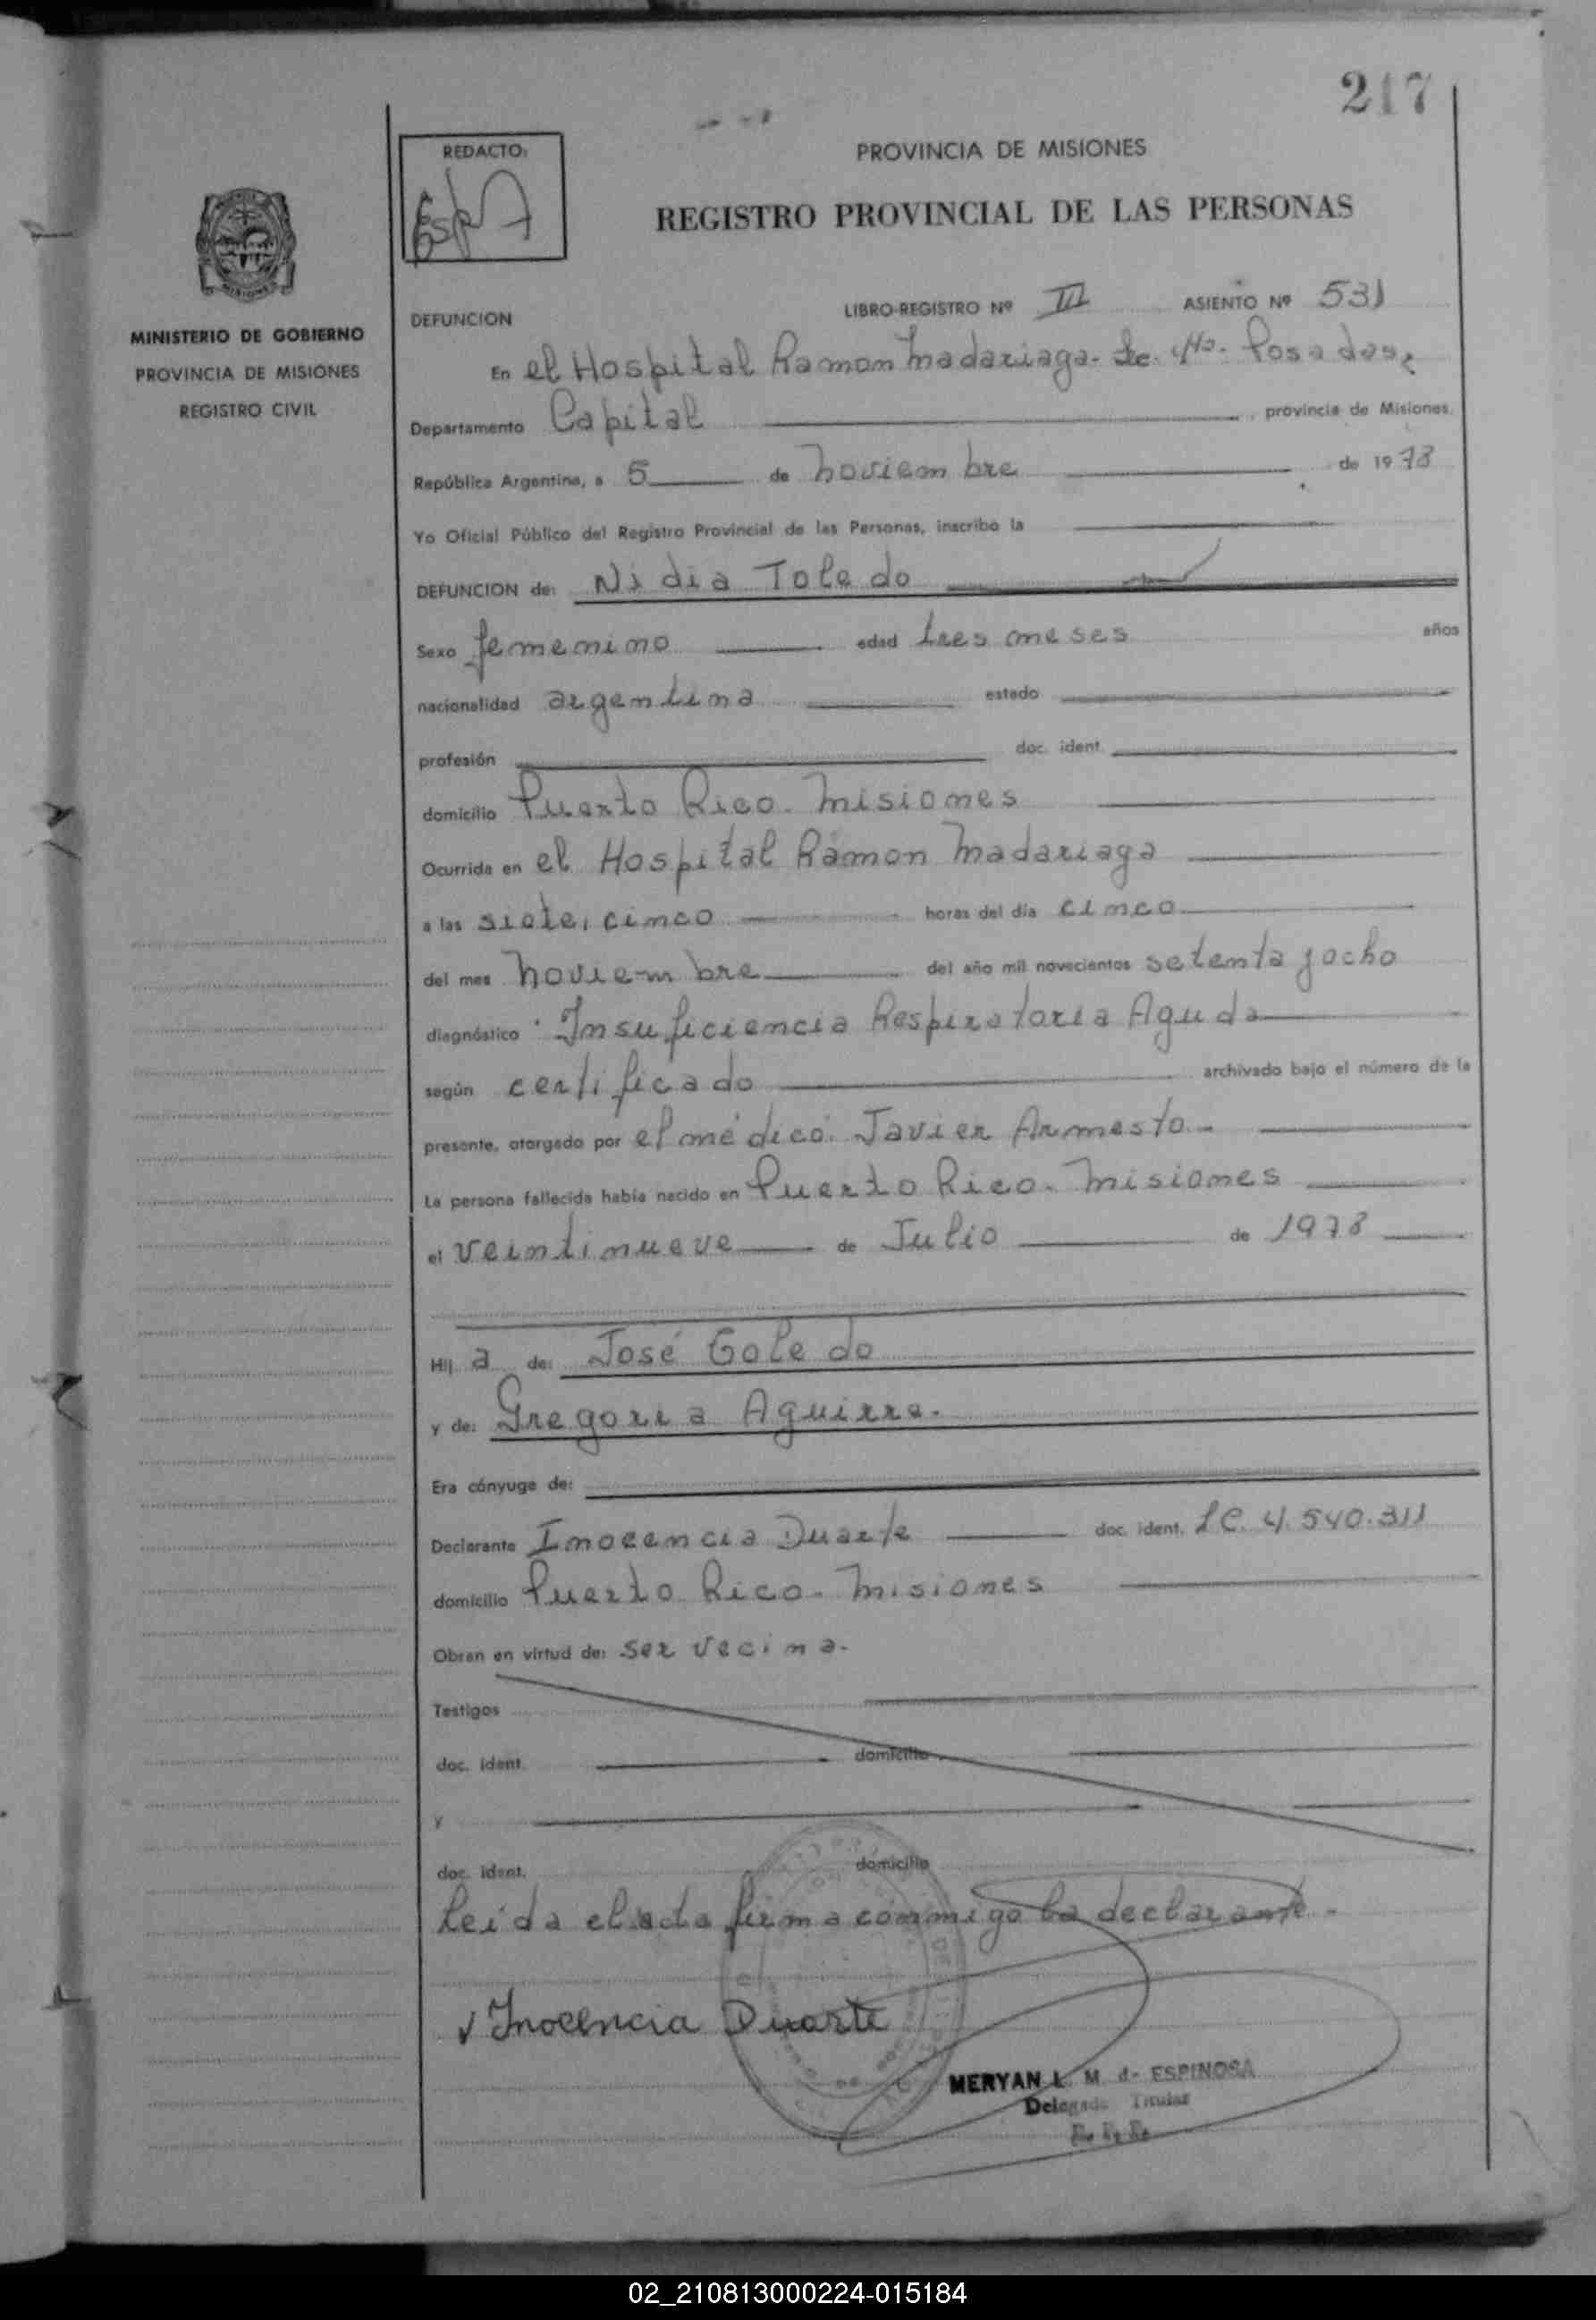 217
REDACTO:
PROVINCIA DE MISIONES
REGISTRO PROVINCIAL DE LAS PERSONAS
MINISTERIO DE GOBIERNO
PROVINCIA DE MISIONES
REGISTRO CIVIL
DEFUNCION
LIBRO-REGISTRO Nº III ASIENTO Nº 531
En el Hospital Ramon Madariaga. Posadas,
Departamento Capital provincia de Misiones,
República Argentina, a 5 de noviembre de 1978
Yo Oficial Público del Registro Provincial de las Personas, inscribo la
DEFUNCION de: Nidia Toledo
Sexo femenino edad tres meses años
nacionalidad argentina estado
profesión doc. ident.
domicilio Puerto Rico. Misiones
Ocurrida en el Hospital Ramon Madariaga
a las siete, cinco horas del día cinco
del mes noviembre del año mil novecientos setenta y ocho
diagnóstico Insuficiencia Respiratoria Aguda
según certificado archivado bajo el número de la
presente, otorgado por el médico Javier Armesto.-
La persona fallecida había nacido en Puerto Rico. Misiones
el veintinueve de Julio de 1978
Hij a de: José Toledo
y de: Gregoria Aguirre.
Era cónyuge de:
Declarante Inocencia Duarte doc. ident. LC. 4.540.311
domicilio Puerto Rico. Misiones
Obran en virtud de: ser vecina.
Testigos
doc. ident. domicilio
y
doc. ident. domicilio
Leída el acta firma conmigo la declarante.
Inocencia Duarte
MERYAN L. M. de ESPINOSA
Delegada Titular
02_210813000224-015184